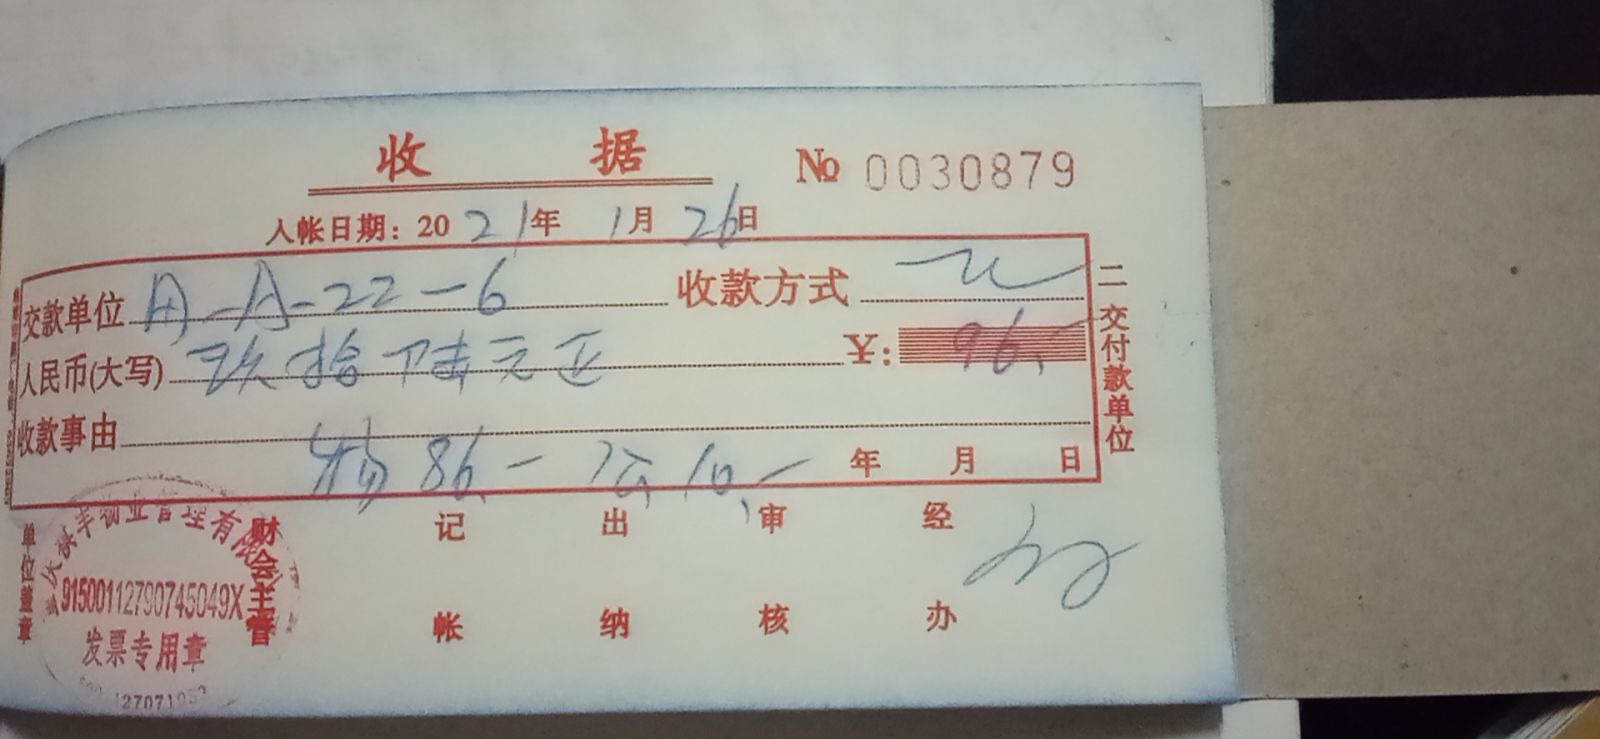 收据 No 0030879
入帐日期：2021年1月26日
交款单位 A-22-6 收款方式
人民币(大写) 玖拾陆元正 ¥: 96.
收款事由 物86.- 公10.-
年 月 日
二交付款单位
单位盖章 财会主管 记帐 出纳 审核 经办
物业管理有限
91500112790745049X
发票专用章